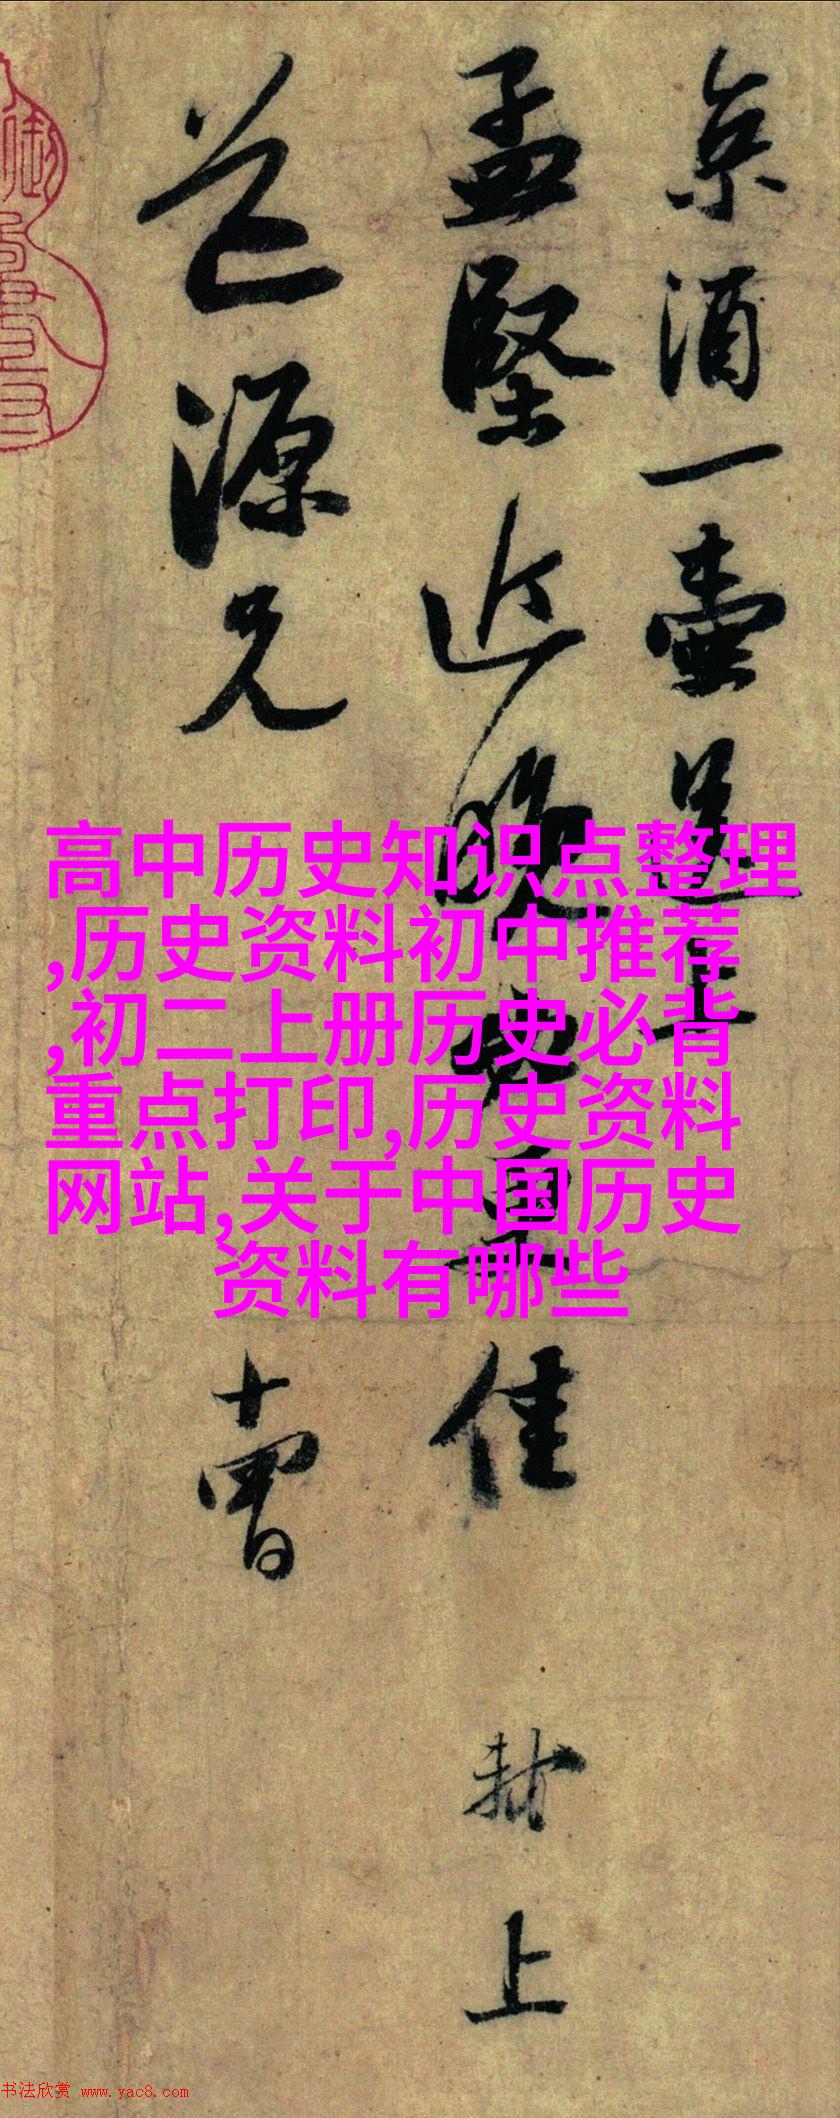 京酒一壶送上
孟坚近晚必更佳
黻上
道源兄
十曹
高中历史知识点整理
,历史资料初中推荐
,初二上册历史必背
重点打印,历史资料
网站,关于中国历史
资料有哪些
书法欣赏 www.yac8.com